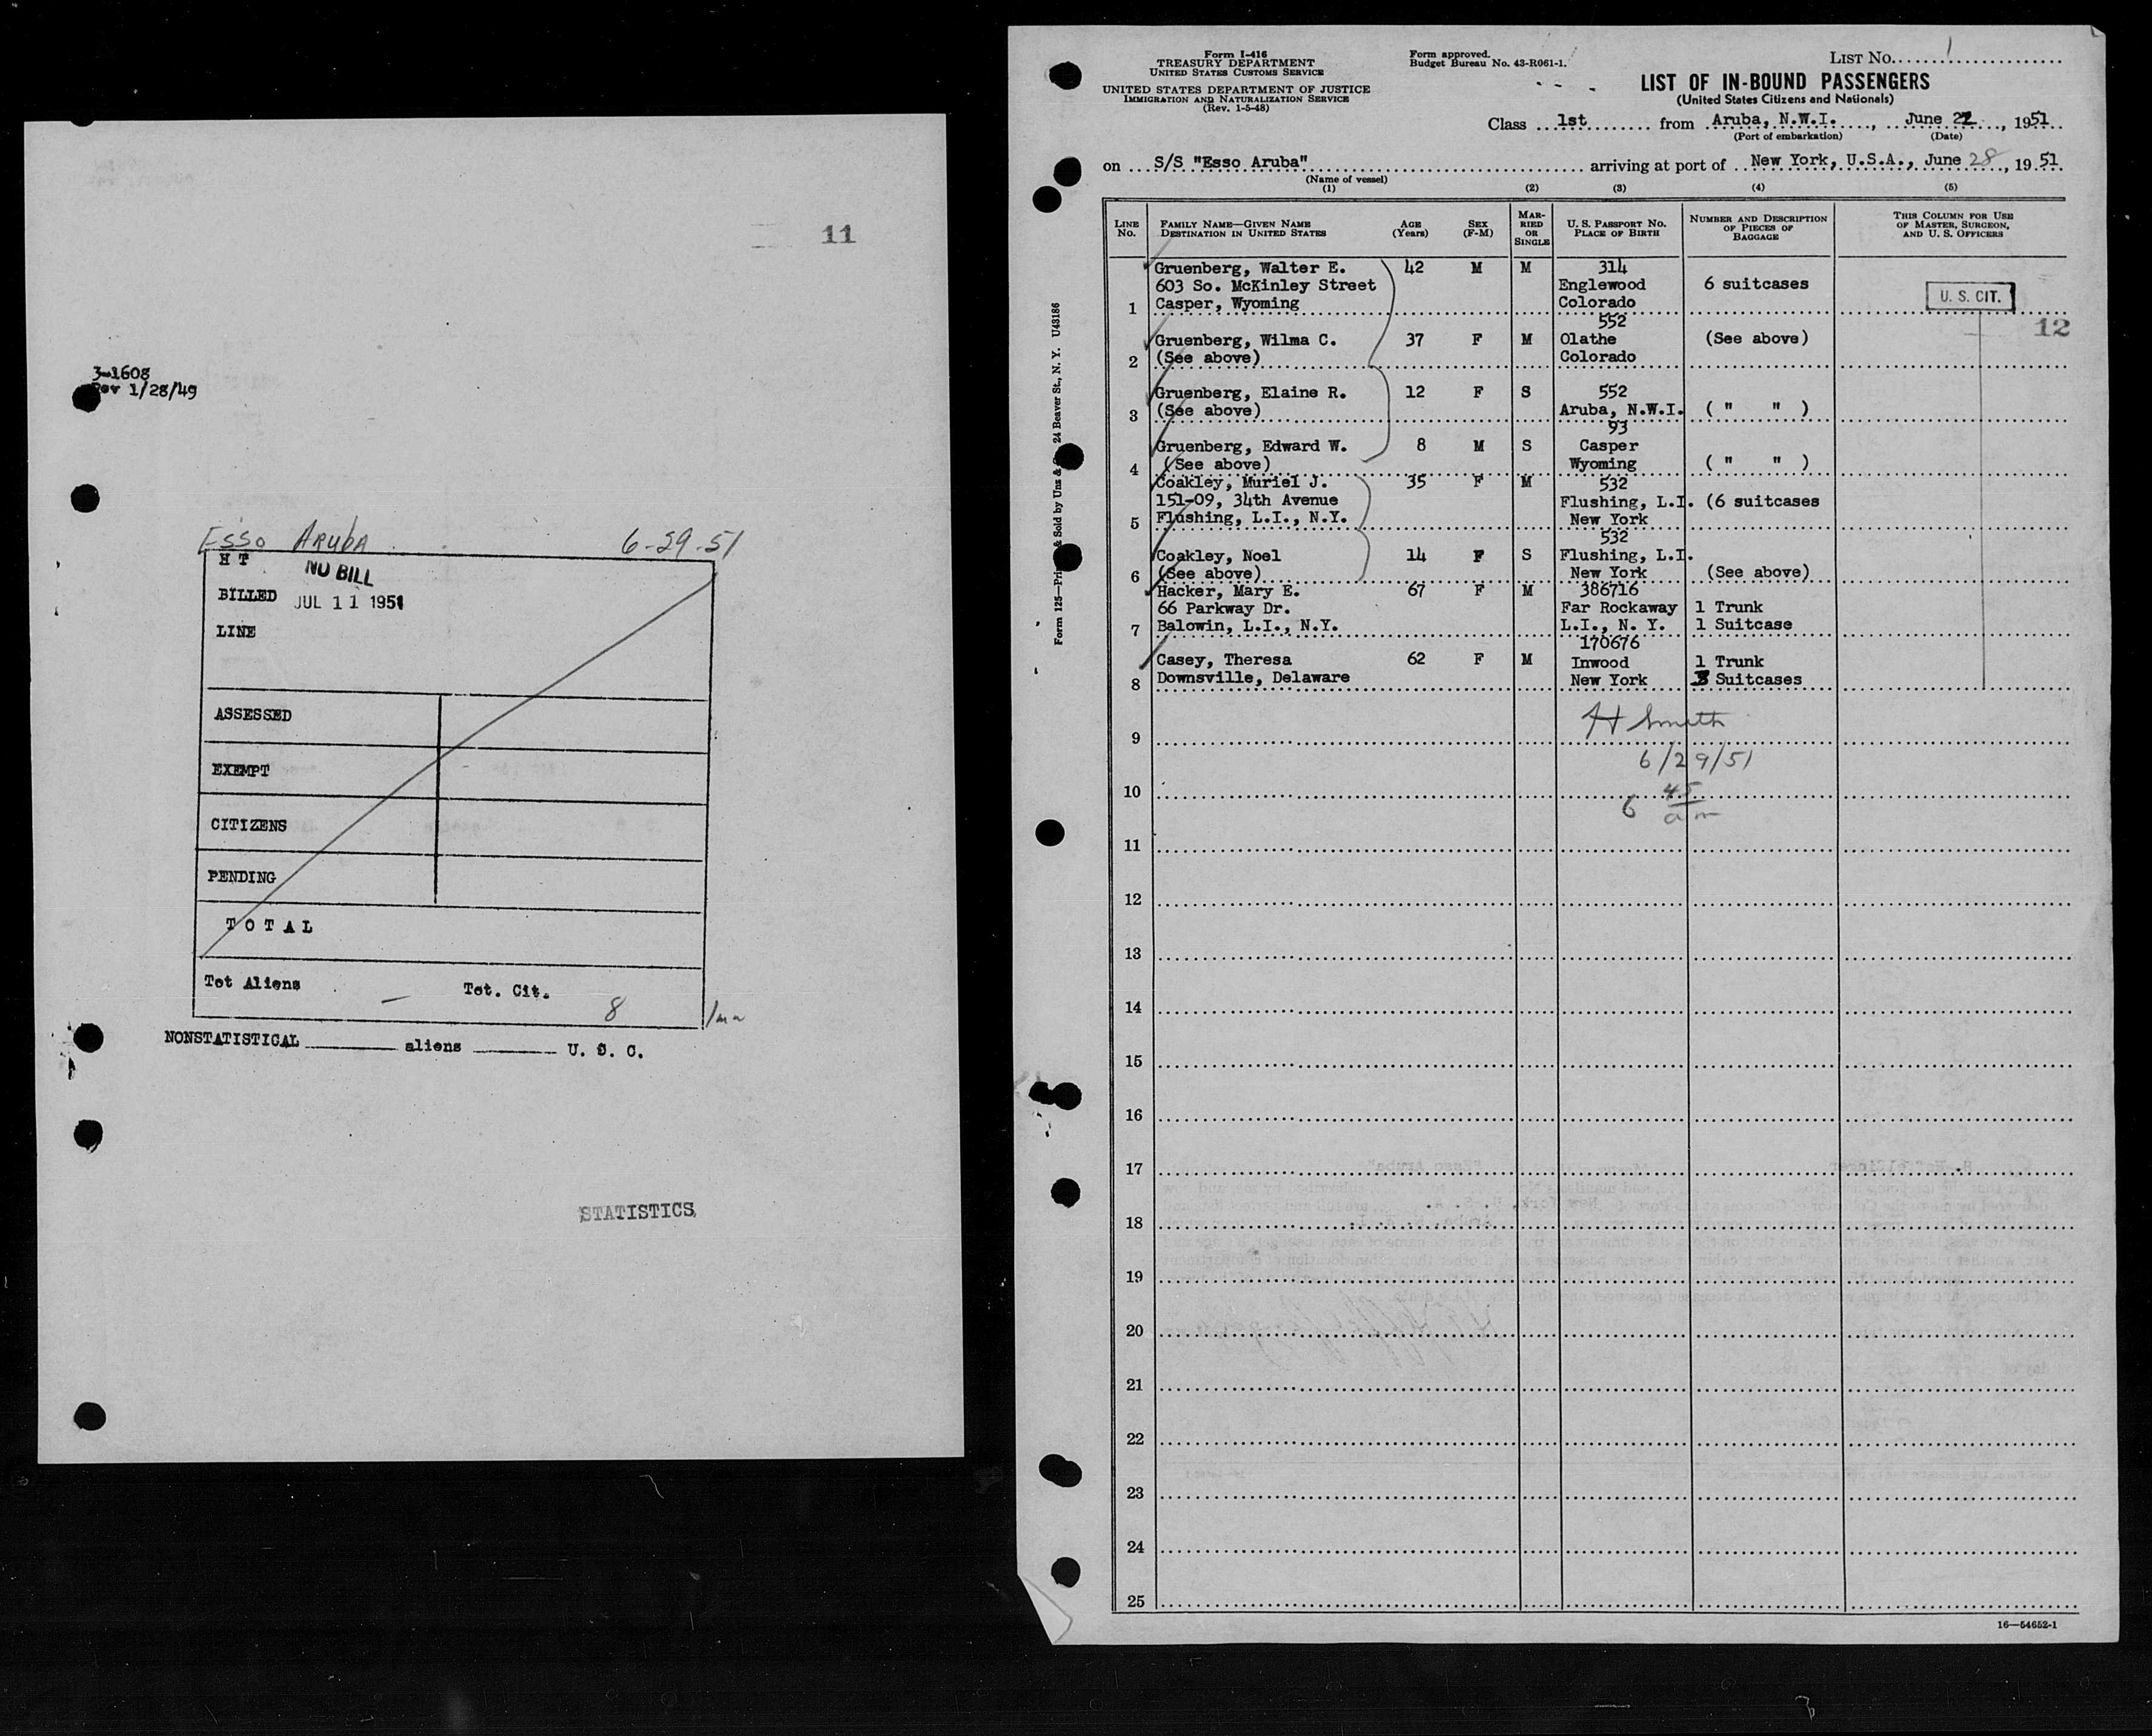 11
3-1608
Rev 1/28/49
Esso Aruba 6-29-51
H T
NO BILL
BILLED JUL 11 1951
LINE
ASSESSED
EXEMPT
CITIZENS
PENDING
T O T A L
Tot Aliens — Tot. Cit. 8
NONSTATISTICAL aliens U. S. C.
STATISTICS
Form I-416
TREASURY DEPARTMENT
UNITED STATES CUSTOMS SERVICE
UNITED STATES DEPARTMENT OF JUSTICE
IMMIGRATION AND NATURALIZATION SERVICE
(Rev. 1-5-48)
Form approved.
Budget Bureau No. 43-R061-1.
LIST NO. 1
LIST OF IN-BOUND PASSENGERS
(United States Citizens and Nationals)
Class 1st from Aruba, N.W.I., June 22, 1951
(Port of embarkation) (Date)
on S/S "Esso Aruba" arriving at port of New York, U.S.A., June 28, 19 51
(Name of vessel)
(1) (2) (3) (4) (5)
LINE No. FAMILY NAME—GIVEN NAME DESTINATION IN UNITED STATES AGE (Years) SEX (F-M) MARRIED OR SINGLE U. S. PASSPORT NO. PLACE OF BIRTH NUMBER AND DESCRIPTION OF PIECES OF BAGGAGE THIS COLUMN FOR USE OF MASTER, SURGEON, AND U. S. OFFICERS
Gruenberg, Walter E. 42 M M 314
603 So. McKinley Street Englewood 6 suitcases
1 Casper, Wyoming Colorado U. S. CIT.
552 12
Gruenberg, Wilma C. 37 F M Olathe (See above)
2 (See above) Colorado
Gruenberg, Elaine R. 12 F S 552
3 (See above) Aruba, N.W.I. ( " " )
93
Gruenberg, Edward W. 8 M S Casper
4 (See above) Wyoming ( " " )
Coakley, Muriel J. 35 F M 532
151-09, 34th Avenue Flushing, L.I. (6 suitcases
5 Flushing, L.I., N.Y. New York
532
Coakley, Noel 14 F S Flushing, L.I.
6 (See above) New York (See above)
Hacker, Mary E. 67 F M 386716
66 Parkway Dr. Far Rockaway 1 Trunk
7 Balowin, L.I., N.Y. L.I., N. Y. 1 Suitcase
170676
Casey, Theresa 62 F M Inwood 1 Trunk
8 Downsville, Delaware New York 3 Suitcases
H Smith
9
6/29/51
10
6 45 am
11
12
13
14
15
16
17
18
19
20
21
22
23
24
25
16—54652-1
U43186